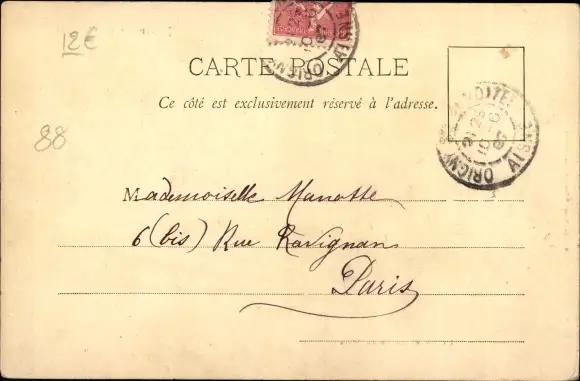 12€
CARTE POSTALE
Ce côté est exclusivement réservé à l'adresse.
88
Mademoiselle Manotte
6 (bis) Rue Ravignan
Paris
ORIGNY
AISNE
ORIGNY
AISNE